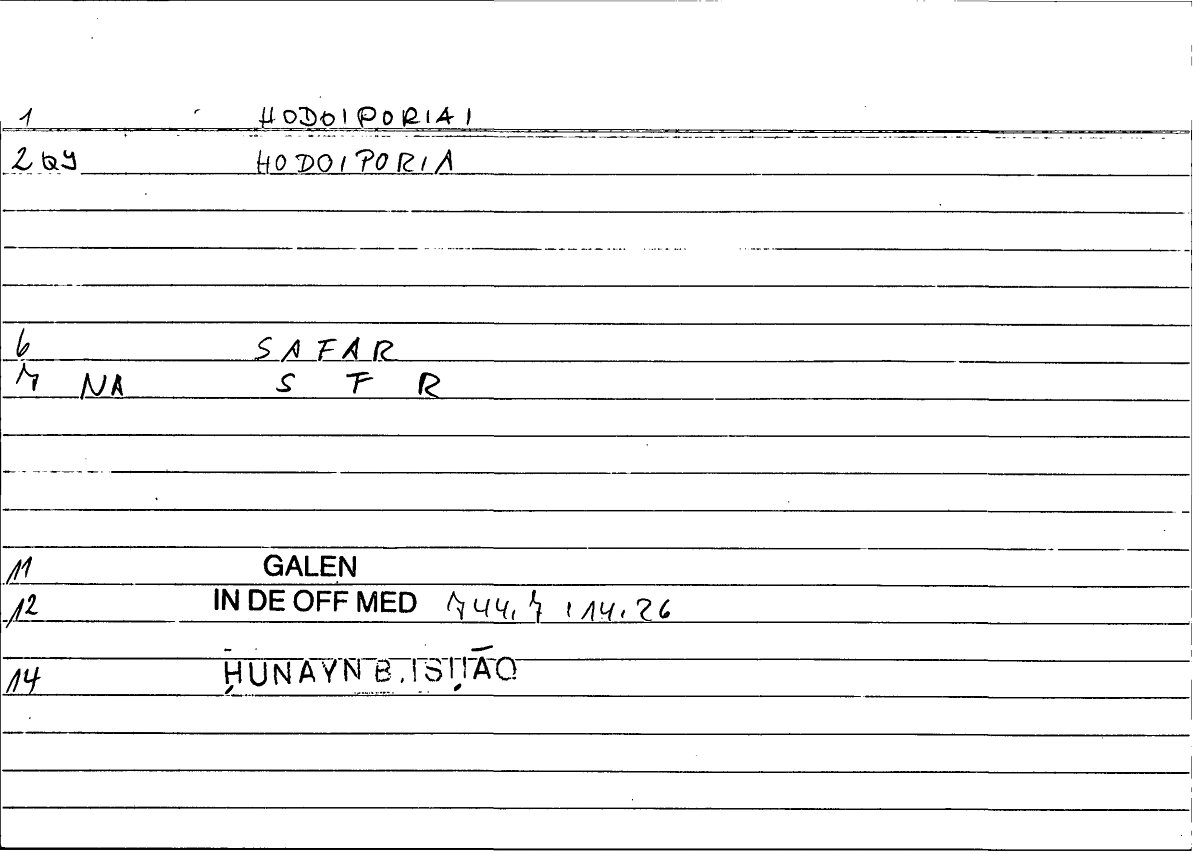 1 HODOIPORIAI
2 QY HODOIPORIA
6 SAFAR
7 NA S F R
11 GALEN
12 IN DE OFF MED 744,7 ; 14,26
14 ḤUNAYN B. ISḤĀQ